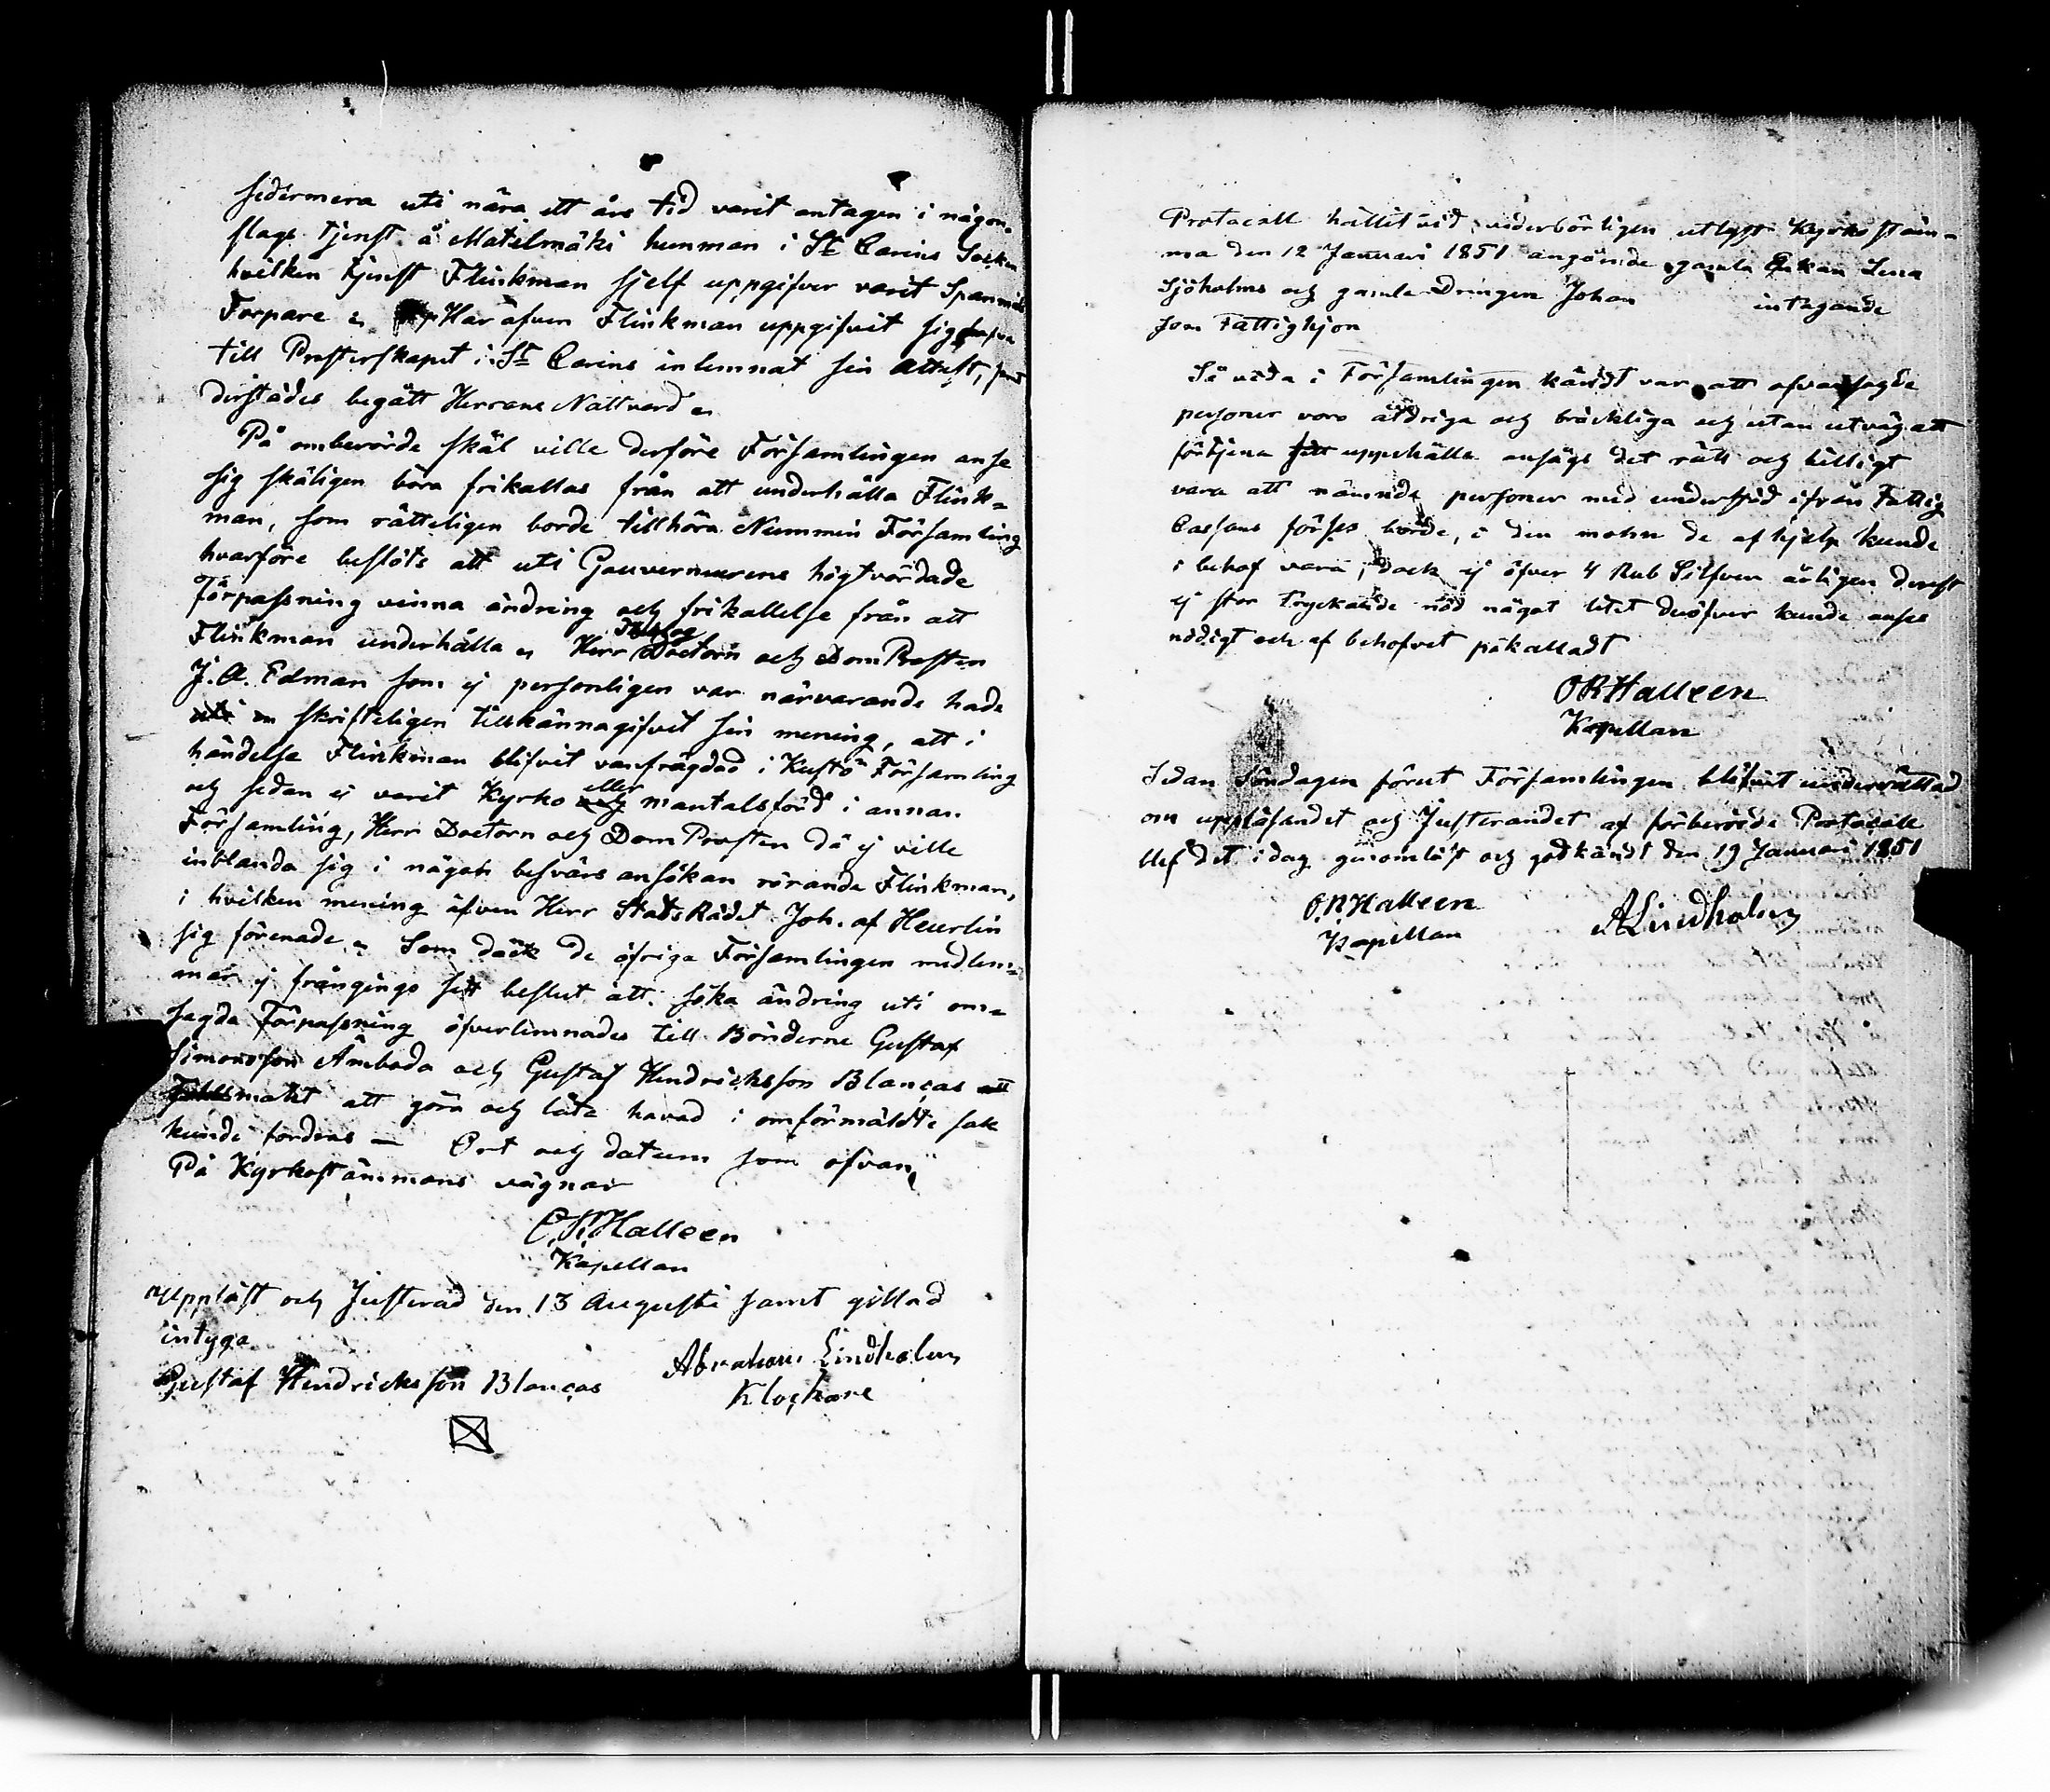 sedermera uti nära ett års tid varit antagen i någon
slags tjenst å Matelmäki hemman i St Carins Socken
hvilken tjenst Flinkman sjelf uppgifver varit Spanmåls
Torpare Har äfven Flinkman uppgifvit sig hafva
till Presterskapet i St Carins inlemnat sin Attest, samt
derstädes begått Herrans Nattvard
På omberörde skäl ville derföre Församlingen anse
sig skäligen böra frikallas från att underhålla Flink=
man, som rätteligen borde tillhöra Nummis Församling
hvarföre beslöts att uti Gouverneurens högtvördade
Förpassning vinna ändring och frikallelse från att
Flinkman underhålla Herr Theolog Doctorn och DomProsten
J. A. Edman som ej personligen var närvarande hade
skrifteligen tillkännagifvit sin mening, att i
händelse Flinkman blifvit vanfrägdad i Kustö Församling
och sedan ej varit Kyrko eller mantalsförd i annan
Församling, Herr Doctorn och DomProsten då ej ville
inblanda sig i någon besvärs ansökan rörande Flinkman,
i hvilken mening äfven Herr StatsRådet Joh. af Heurlin
sig förenade Som dock de öfriga Församlingen medlem=
mar ej frångingo sitt beslut att söka ändring uti om=
sagda Förpassning öfverlemnades till Bönderne Gustaf
Simonsson Åmboda och Gustaf Hendricksson Blancas
Fullmakt att göra och låta hvad i omförmäldte sak
kunde fordras — Ort och datum som ofvan
På Kyrkostämmans vägnar
O. R. Halleen
Kapellan
Uppläst och Justerad den 13 Augusti samt gillad
intyga
Gustaf Hendricksson Blancas
Abraham Lindholm
Klockare
Protocoll hållit vid vederbörligen utlyst Kyrkostäm-
ma den 12 Januari 1851 angående gamla Enkan Lena
Sjöholms och gamle Drengen Johan intagande
som Fattighjon
Så vida i Församlingen kändt var att ofvansagde
personer voro åldriga och bräckliga och utan utväg att
förtjena sitt uppehälle ansågs det rätt och billigt
vara att nämnde personer med understöd ifrån Fattig
Cassans förses borde, i den mohn de af hjelp kunde
i behof vara, dock ej öfver 4 Rub Silfver årligen derest
ej stor tryckande nöd något litet deröfver kunde anses
nödigt och af behofvet påkalladt
O R Halleen
Kapellan
Sedan Söndagen förut Församlingen blifvit underrättad
om uppläsandet och Justerandet af förberörde Protocoll
blef det i dag genomläst och godkändt den 19 Januari 1851
O. R. Halleen
Kapellan
A Lindholm